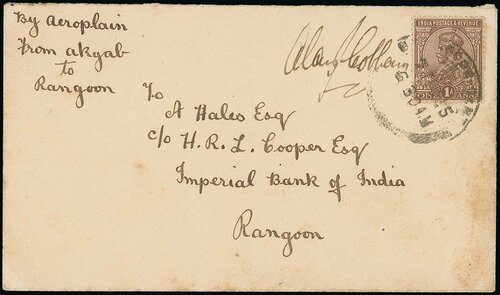 By Aeroplain
From akyab
to
Rangoon
Alan J Cobham
INDIA POSTAGE & REVENUE
1
To
A Hales Esq
c/o H. R. L. Cooper Esq
Imperial Bank of India
Rangoon